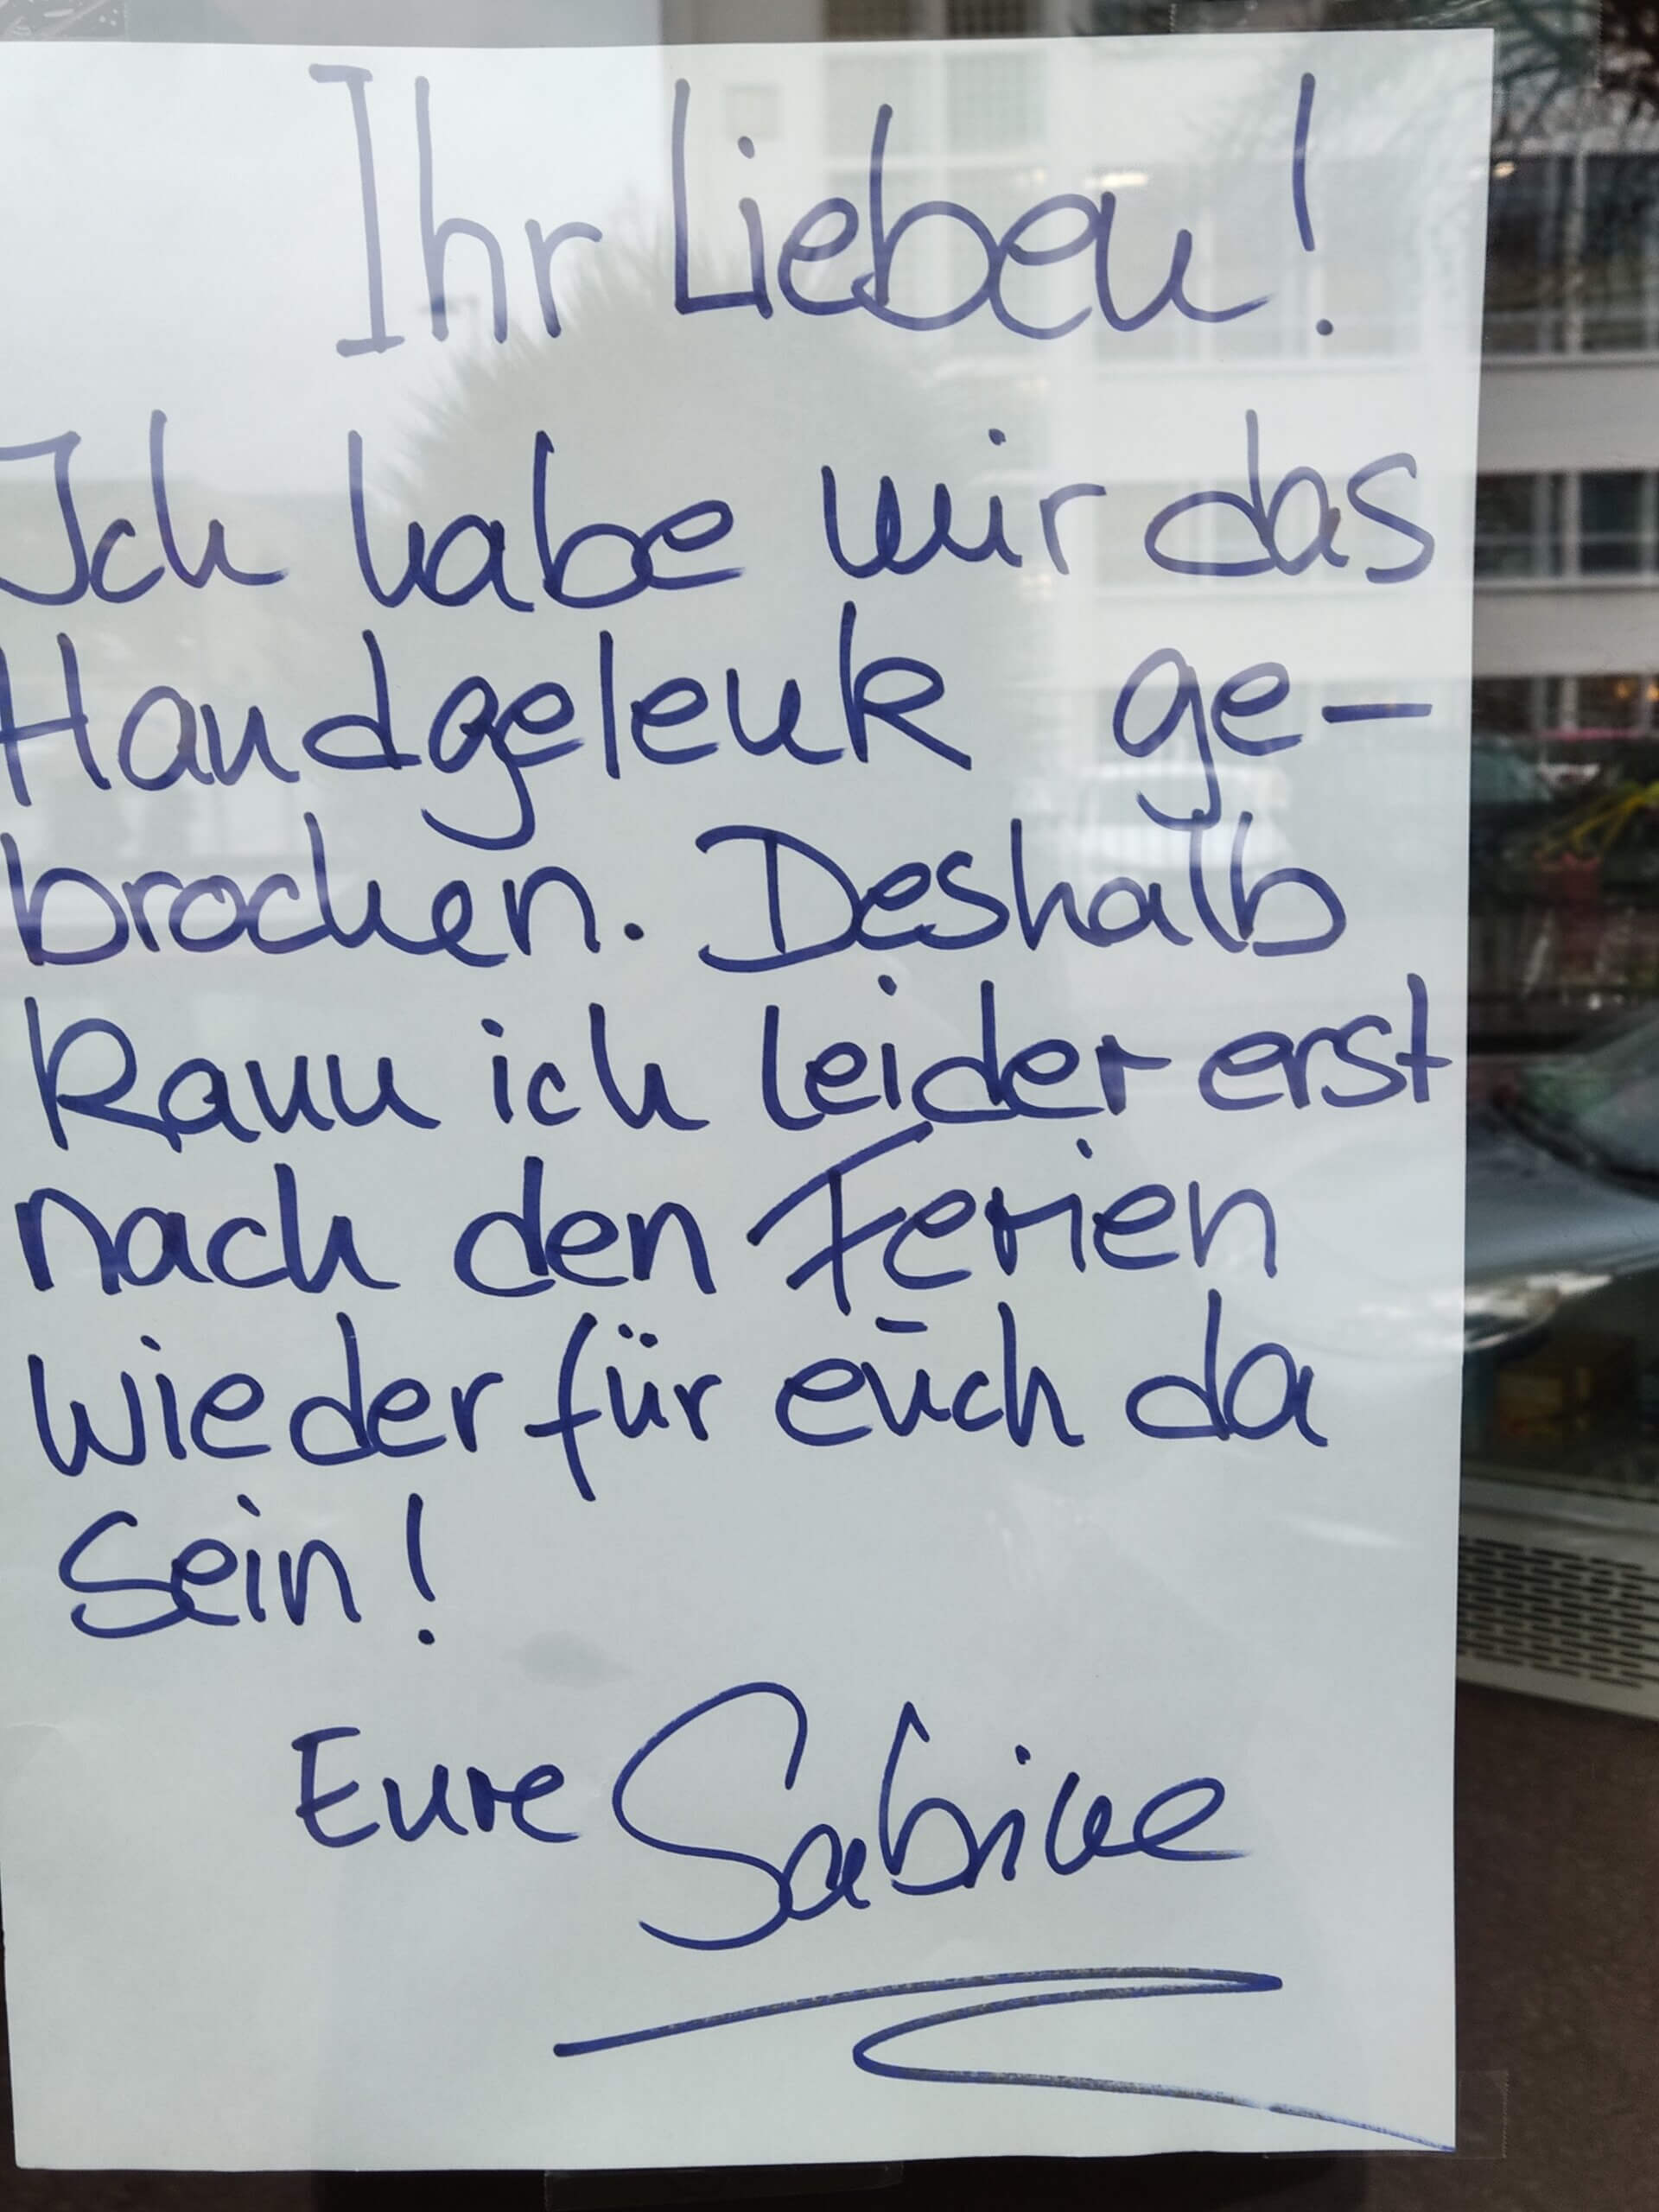 Ihr Lieben!
Ich habe mir das
Handgelenk ge-
brochen. Deshalb
kann ich leider erst
nach den Ferien
wieder für euch da
sein!
Eure Sabine